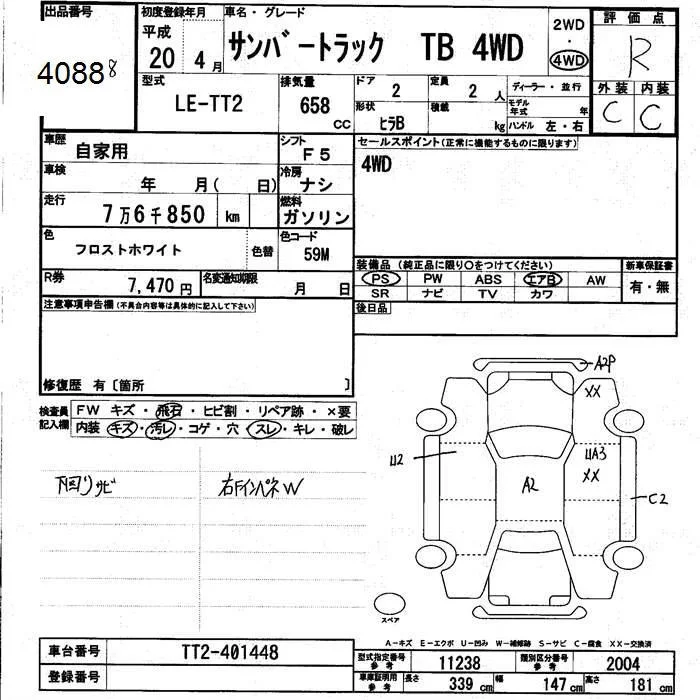 出品番号
40888
初度登録年月
平成
20 4月
車名・グレード
サンバートラック TB 4WD
2WD
・
4WD
評価点
R
外装 内装
C C
型式
LE-TT2
排気量
658
CC
ドア
2
定員
2 人
ディーラー・並行
形状
ヒラB
積載
kg
モデル年式 年
ハンドル 左・右
車歴
自家用
シフト
F5
セールスポイント(正常に機能するものに限ります)
4WD
車検
年 月( 日)
冷房
ナシ
走行
7万6千850 km
燃料
ガソリン
色
フロストホワイト
色替
色コード
59M
装備品 (純正品に限り〇をつけてください)
PS PW ABS エアB AW
SR ナビ TV カワ
新車保証書
有・無
R券
7,470円
名変通知期限
月 日
後日品
注意事項申告欄(不具合内容等は具体的に記入して下さい)
修復歴 有〔箇所 〕
検査員記入欄
FW キズ・飛石・ヒビ割・リペア跡・×要
内装 キズ・汚レ・コゲ・穴 スレ・キレ・破レ
下回りサビ
右FインパネW
A2P
XX
U2
UA3
XX
A2
C2
スペア
A-キズ E-エクボ U-凹み W-補修跡 S-サビ C-腐食 XX-交換済
車台番号
TT2-401448
登録番号
型式指定番号
参考
11238
類別区分番号
参考
2004
車庫証明用
参考
長さ 339cm 幅 147cm 高さ 181cm